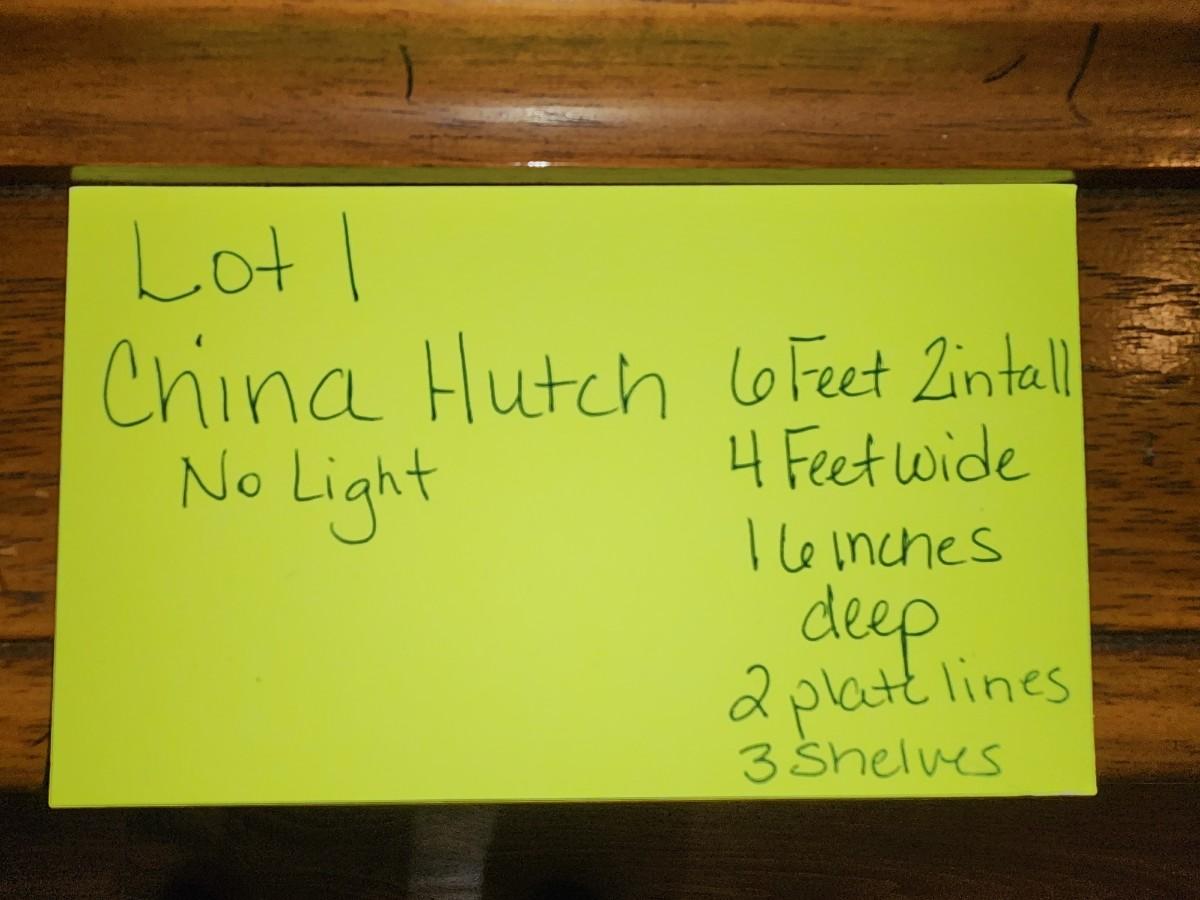 Lot 1
China Hutch
No Light
6 Feet 2in tall
4 Feet wide
16 inches
deep
2 plate lines
3 shelves